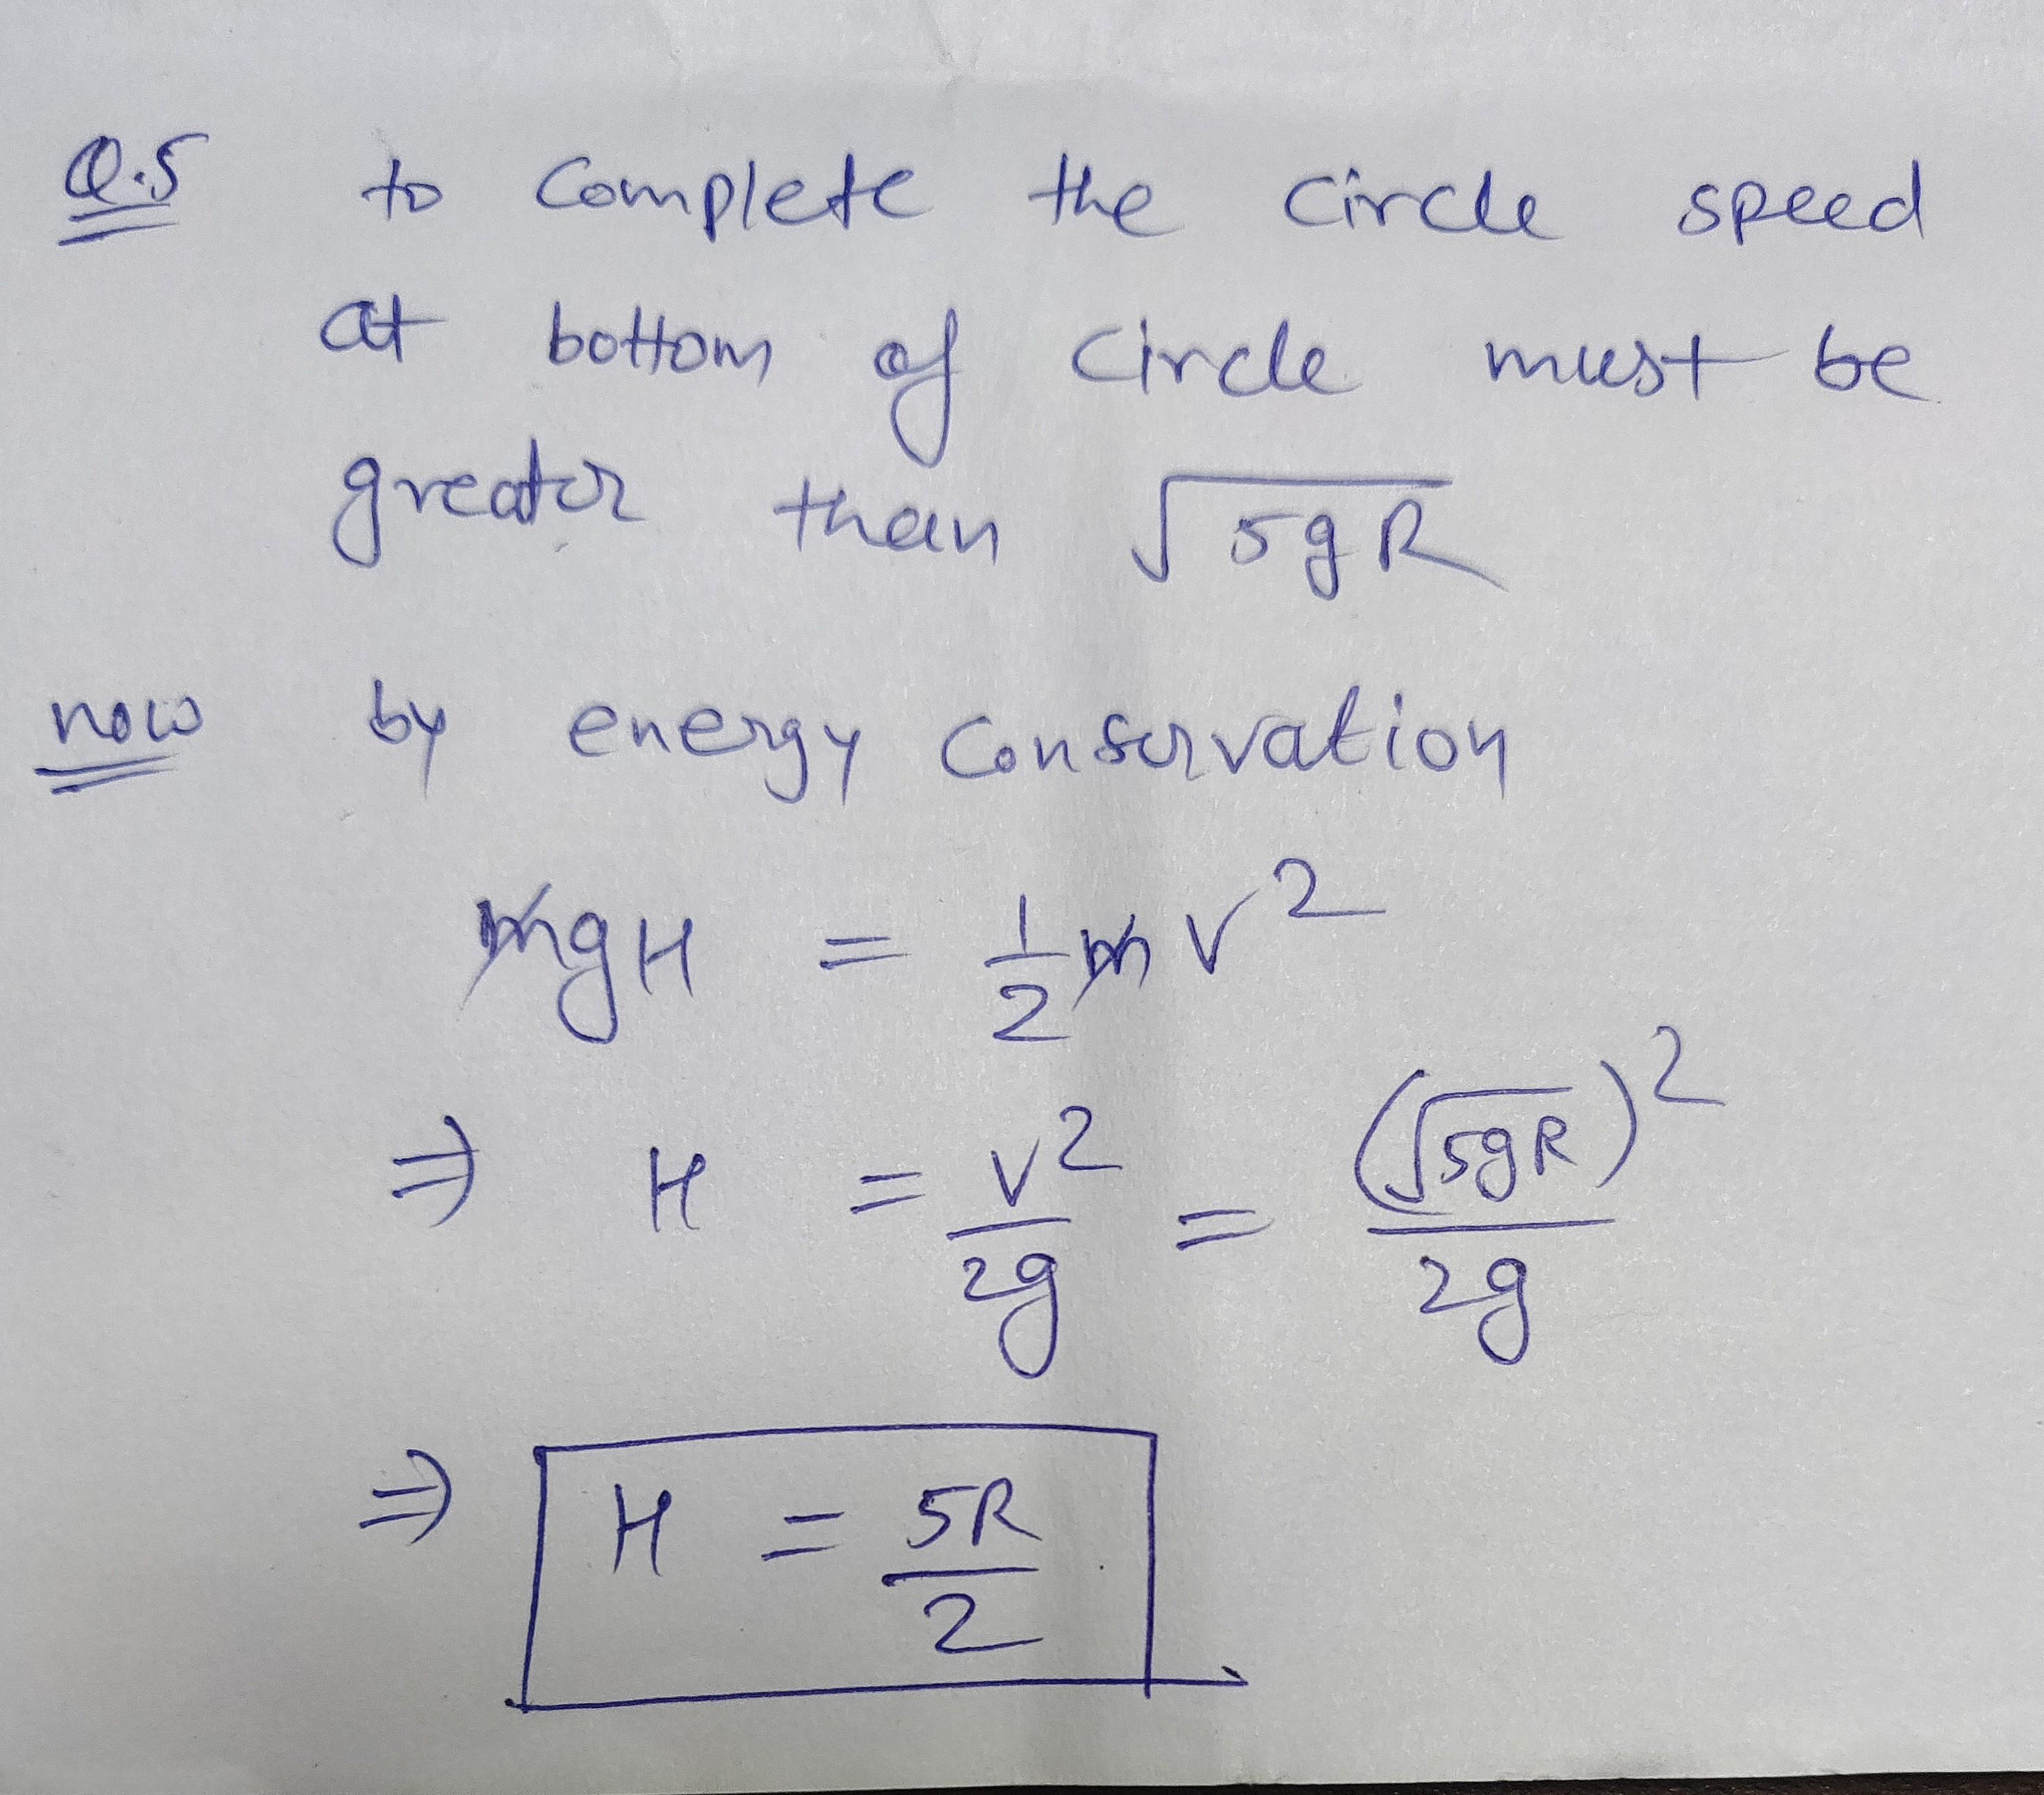 Q.5 to complete the circle speed
at bottom of circle must be
greater than √5gR
now by energy conservation
mgH = 1/2 mv²
⇒ H = v²/2g = (√5gR)²/2g
⇒ H = 5R/2